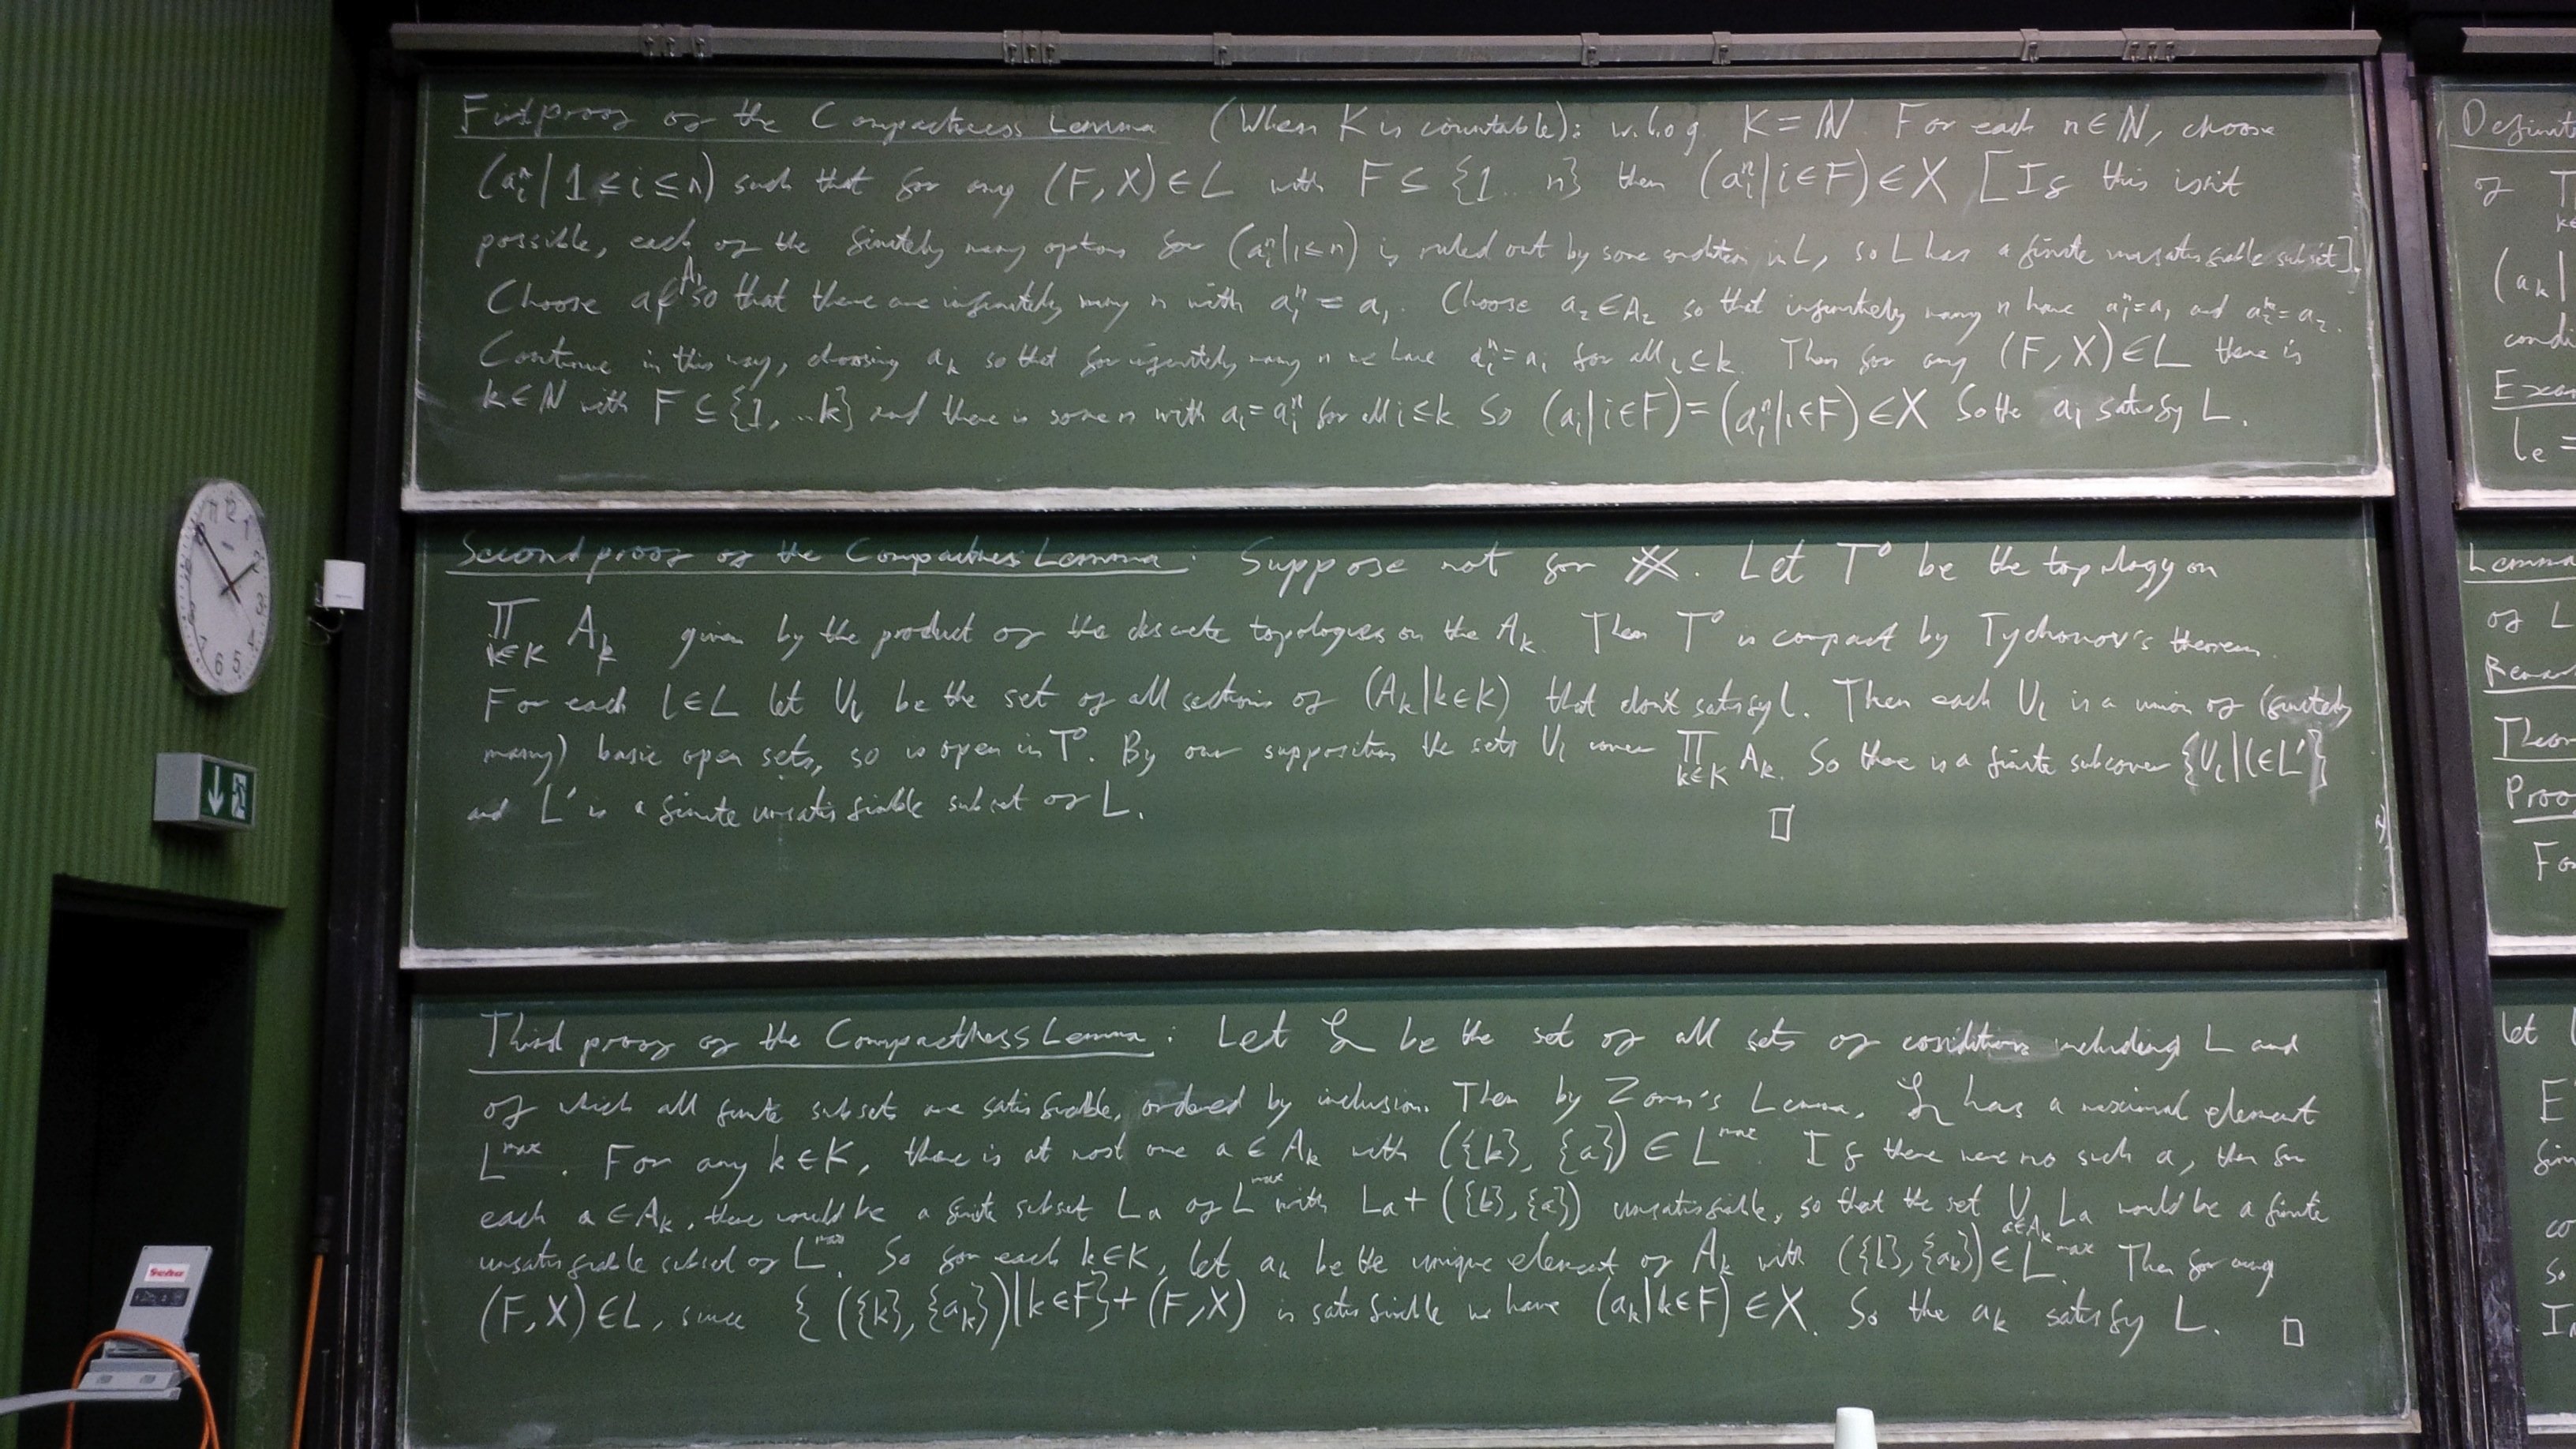 First proof of the Compactness Lemma (When K is countable): w.l.o.g. K = ℕ. For each n∈ℕ, choose
(aᵢⁿ | 1 ≤ i ≤ n) such that for any (F, X) ∈ L with F ⊆ {1 ... n} then (aᵢⁿ | i∈F) ∈ X [If this isn't
possible, each of the finitely many options for (aᵢⁿ | i≤n) is ruled out by some condition in L, so L has a finite unsatisfiable subset].
Choose a₁∈A₁ so that there are infinitely many n with a₁ⁿ = a₁. Choose a₂∈A₂ so that infinitely many n have a₁ⁿ=a₁ and a₂ⁿ=a₂.
Continue in this way, choosing aₖ so that for infinitely many n we have aᵢⁿ=aᵢ for all i≤k. Then for any (F, X)∈L there is
k∈ℕ with F ⊆ {1, ...k} and there is some n with aᵢ=aᵢⁿ for all i≤k. So (aᵢ | i∈F) = (aᵢⁿ | i∈F) ∈ X So the aᵢ satisfy L.
Second proof of the Compactness Lemma: Suppose not for . Let T⁰ be the topology on
∏_{k∈K} Aₖ given by the product of the discrete topologies on the Aₖ. Then T⁰ is compact by Tychonov's theorem.
For each l∈L let U_l be the set of all sections of (Aₖ | k∈K) that don't satisfy l. Then each U_l is a union of (finitely
many) basic open sets, so is open in T⁰. By our supposition the sets U_l cover ∏_{k∈K} Aₖ. So there is a finite subcover {U_l | l∈L'}
and L' is a finite unsatisfiable subset of L. □
Third proof of the Compactness Lemma: Let 𝓛 be the set of all sets of conditions including L and
of which all finite subsets are satisfiable, ordered by inclusion. Then by Zorn's Lemma, 𝓛 has a maximal element
L^max. For any k∈K, there is at most one a ∈ Aₖ with ({k}, {a}) ∈ L^max. If there were no such a, then for
each a∈Aₖ, there would be a finite subset Lₐ of L^max with Lₐ + ({k}, {a}) unsatisfiable, so that the set ∪_{a∈Aₖ} Lₐ would be a finite
unsatisfiable subset of L^max. So for each k∈K, let aₖ be the unique element of Aₖ with ({k}, {aₖ}) ∈ L^max. Then for any
(F, X)∈L, since {({k}, {aₖ}) | k∈F} + (F, X) is satisfiable we have (aₖ | k∈F) ∈ X. So the aₖ satisfy L. □
of
(aₖ |
l_e =
Lemma
of L
Proo
Fo
let
E
co
So